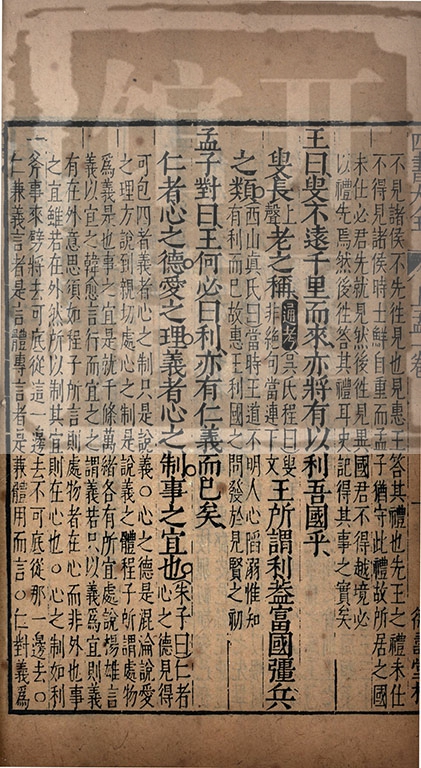 四書大全
不見諸侯不先徃見也見惠王答其禮也先王之禮未仕
不得見諸侯時士鮮自重而孟子猶守此禮故所居之國
未仕必君先就見然後徃見異國君不得越境必
以禮先焉然後徃答其禮耳史記得其事之實矣
王曰叟不遠千里而來亦將有以利吾國乎
叟長上聲老之稱通考吳氏程曰叟非絶句當連下文王所謂利葢富國彊兵
之類西山真氏曰當時王道不明人心陷溺惟知有利而已故惠王利國之問發於見賢之初
孟子對曰王何必曰利亦有仁義而已矣
仁者心之德愛之理義者心之制事之宜也朱子曰仁者心之德見得
可包四者義者心之制只是說義○心之德是混淪說愛
之理方說到親切處心之制是說義之體程子所謂處物
爲義是也事之宜是就千條萬緒各有所宜處說楊雄言
義以宜之韓愈言行而宜之之謂義若只以義爲宜則義
有在外意思須如程子所言則處物者在心而非外也事
之宜雖若在外然所以制其宜則在心也○心之制如利
斧事來劈將去可底從這一邊去不可底從那一邊去○
仁兼義言者是言體專言者是兼體用而言○仁對義爲